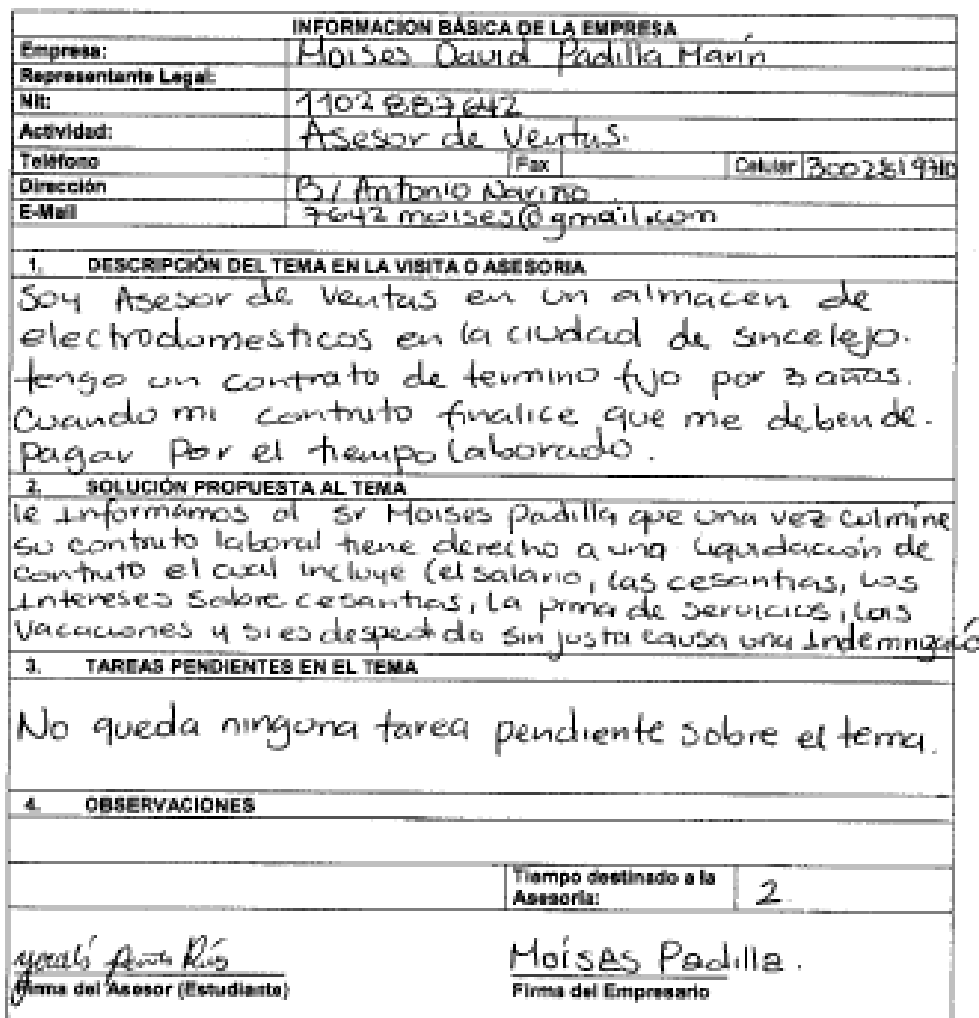 INFORMACION BÁSICA DE LA EMPRESA
Empresa: Moises David Padilla Marín
Representante Legal:
Nit: 1102887642
Actividad: Asesor de Ventas.
Teléfono Fax Celular 3002819710
Dirección B/ Antonio Nariño
E-Mail 7642moises@gmail.com
1. DESCRIPCIÓN DEL TEMA EN LA VISITA O ASESORIA
Soy Asesor de Ventas en un almacen de
electrodomesticos en la ciudad de sincelejo.
tengo un contrato de termino fijo por 3 años.
Cuando mi contrato finalice que me deben de.
Pagar Por el tiempo laborado.
2. SOLUCIÓN PROPUESTA AL TEMA
le informamos al sr Moises padilla que una vez culmine
su contrato laboral tiene derecho a una liquidación de
contrato el cual incluye (el salario, las cesantias, los
intereses sobre cesantias, la prima de servicios, las
Vacaciones y si es despedido sin justa causa una indemnizació
3. TAREAS PENDIENTES EN EL TEMA
No queda ninguna tarea pendiente sobre el tema.
4. OBSERVACIONES
Tiempo destinado a la
Asesoría: 2
Firma del Asesor (Estudiante)
Moíses Padilla.
Firma del Empresario